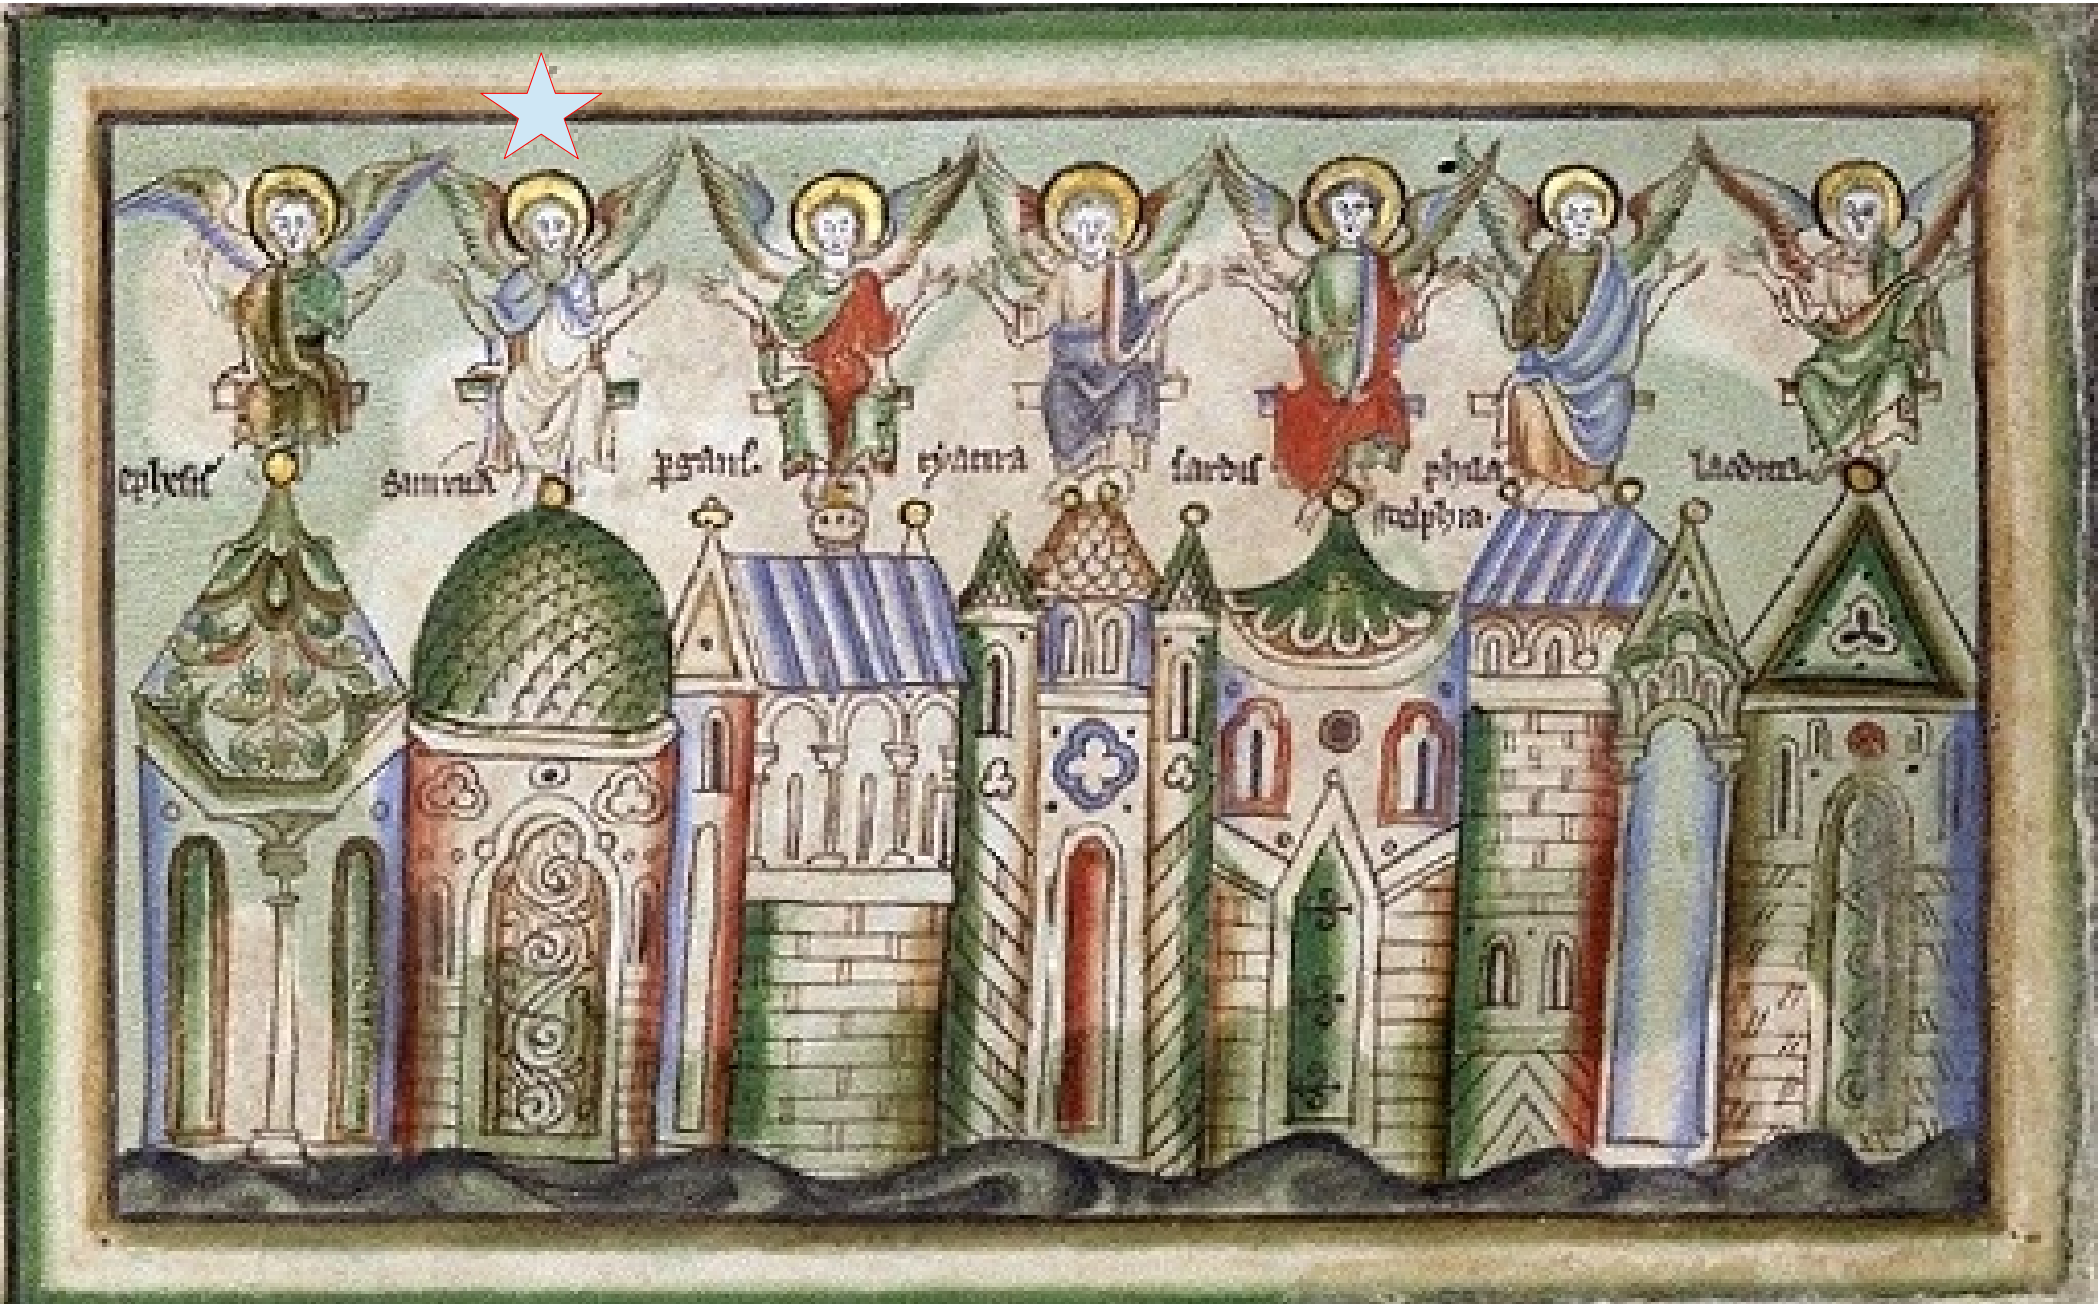 ephesus
smirna
pgam
tyatira
sardis
phila
delphia.
laodicia